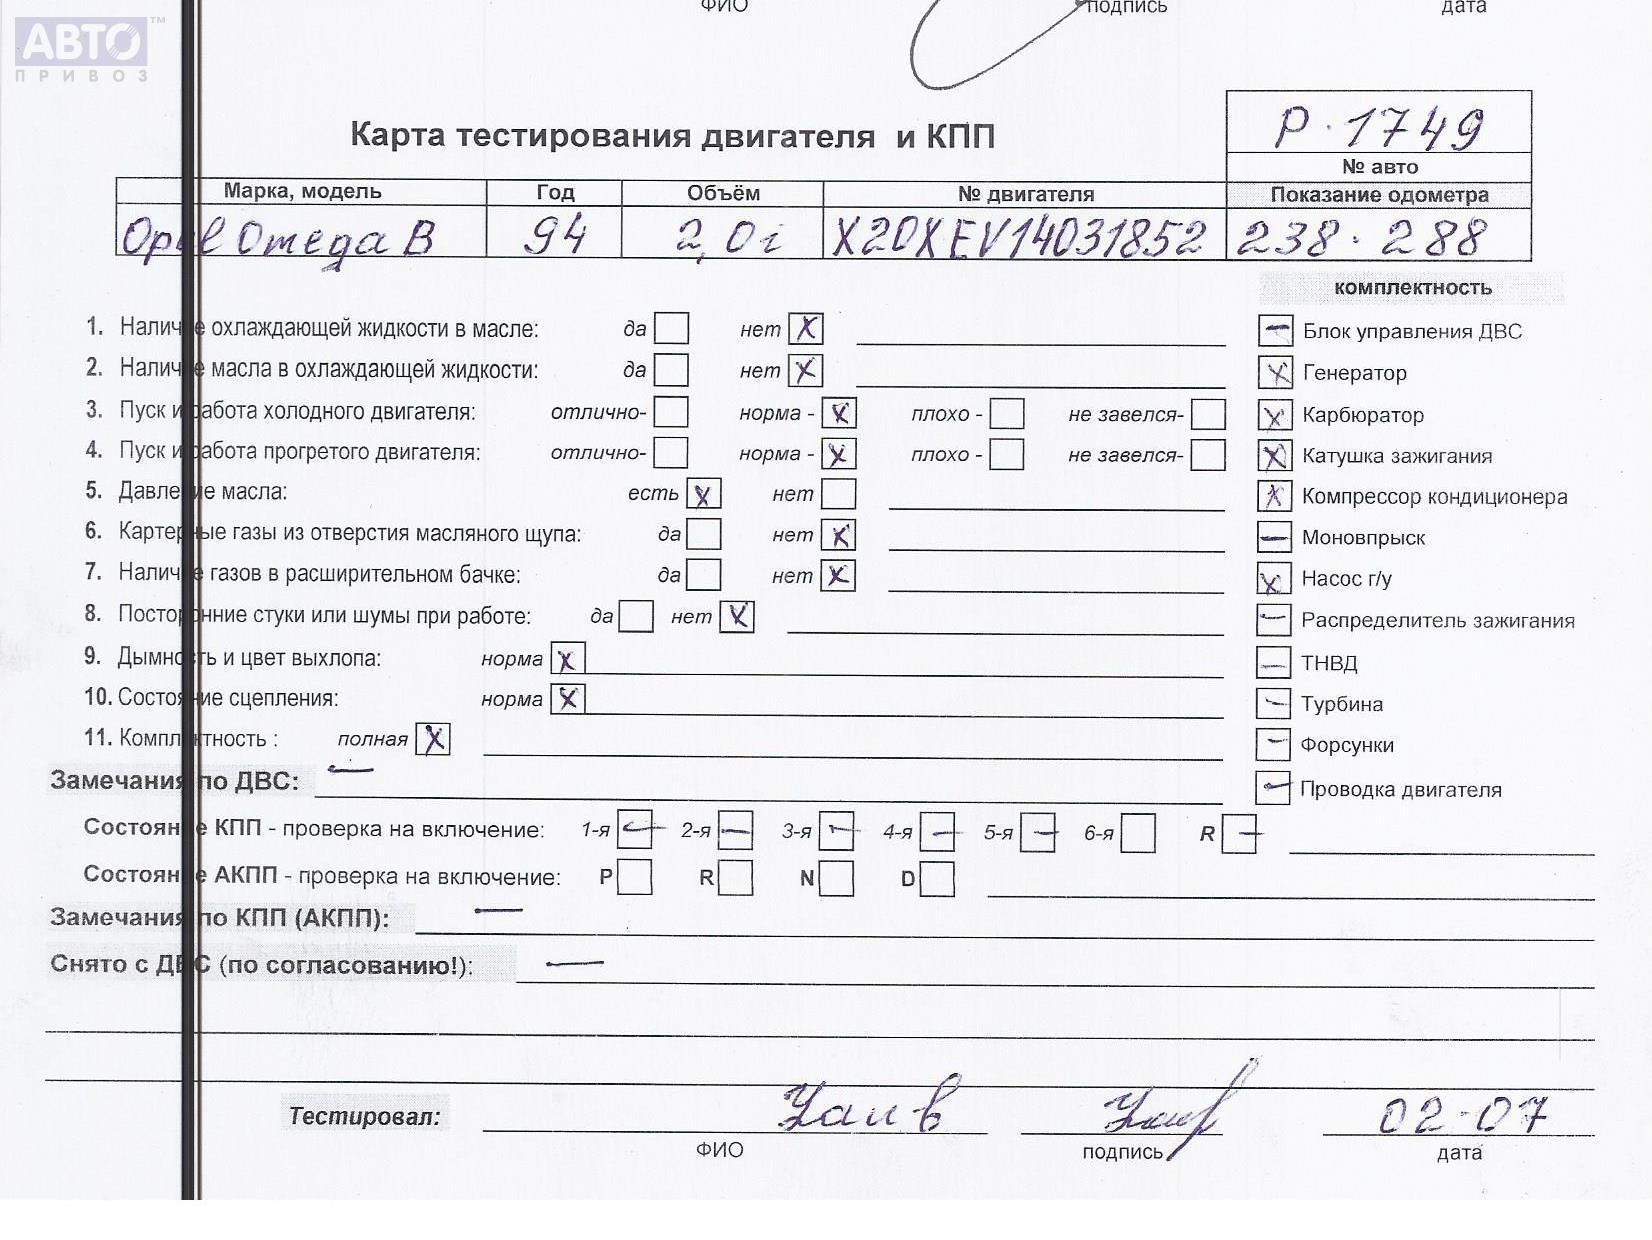 ФИО подпись дата
АВТО ™
ПРИВОЗ
Р.1749
Карта тестирования двигателя и КПП
№ авто
Марка, модель Год Объём № двигателя Показание одометра
Opel Omega B 94 2,0i X20XEV14031852 238.288
комплектность
1. Наличие охлаждающей жидкости в масле: да нет X Блок управления ДВС
2. Наличие масла в охлаждающей жидкости: да нет X Генератор
3. Пуск и работа холодного двигателя: отлично- норма - X плохо - не завелся- Карбюратор
4. Пуск и работа прогретого двигателя: отлично- норма - X плохо - не завелся- Катушка зажигания
5. Давление масла: есть X нет Компрессор кондиционера
6. Картерные газы из отверстия масляного щупа: да нет X Моновпрыск
7. Наличие газов в расширительном бачке: да нет X Насос г/у
8. Посторонние стуки или шумы при работе: да нет X Распределитель зажигания
9. Дымность и цвет выхлопа: норма X ТНВД
10. Состояние сцепления: норма X Турбина
11. Комплектность : полная X Форсунки
Замечания по ДВС: — Проводка двигателя
Состояние КПП - проверка на включение: 1-я — 2-я — 3-я — 4-я — 5-я — 6-я R —
Состояние АКПП - проверка на включение: P R N D
Замечания по КПП (АКПП): —
Снято с ДВС (по согласованию!): —
Тестировал: 02-07
ФИО подпись дата